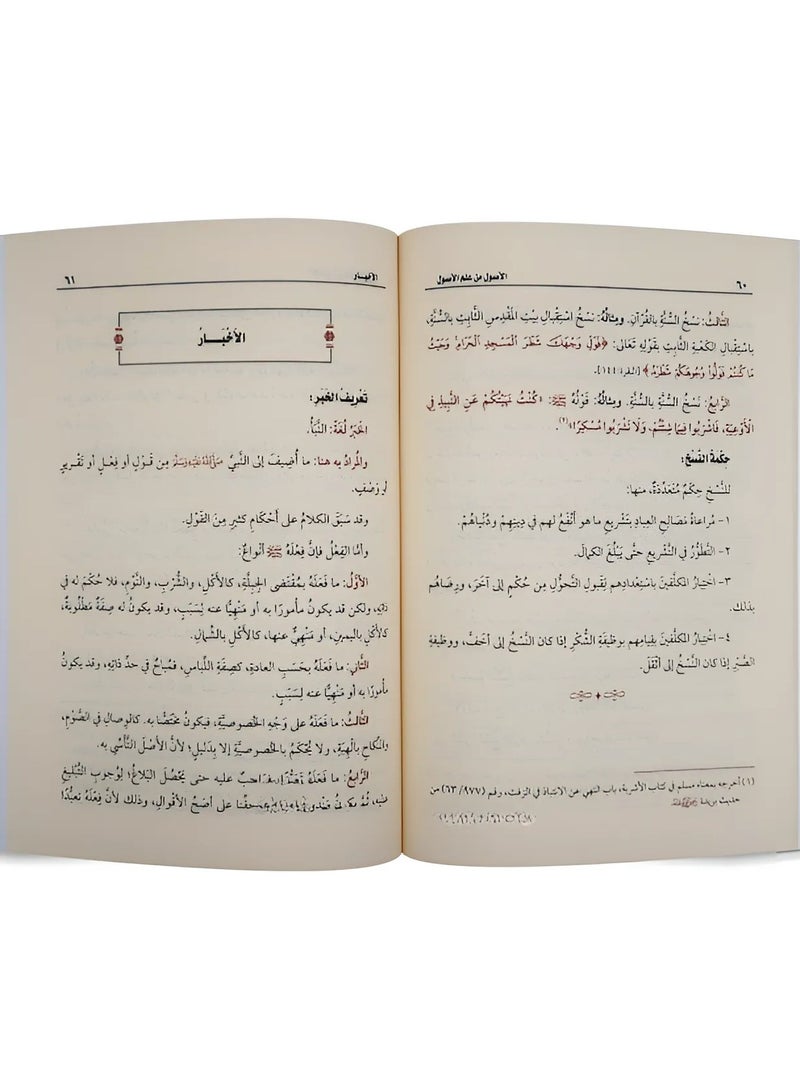 ٦٠ الأصول من علم الأصول
الثَّالِثُ: نَسْخُ السُّنَّةِ بالقُرْآنِ. ومِثالُهُ: نَسْخُ اسْتِقْبالِ بيتِ المَقْدِسِ الثَّابِتِ بالسُّنَّةِ،
باسْتِقْبالِ الكَعْبَةِ الثَّابِتِ بقَوْلِهِ تَعَالَى: ﴿فَوَلِّ وَجْهَكَ شَطْرَ الْمَسْجِدِ الْحَرَامِ وَحَيْثُ
مَا كُنْتُمْ فَوَلُّوا وُجُوهَكُمْ شَطْرَهُ﴾ [البقرة:١٤٤].
الرَّابِعُ: نَسْخُ السُّنَّةِ بالسُّنَّةِ. ومِثالُهُ: قَوْلُهُ ﷺ: «كُنْتُ نَهَيْتُكُمْ عَنِ النَّبِيذِ فِي
الْأَوْعِيَةِ، فَاشْرَبُوا فِيمَا شِئْتُمْ، وَلَا تَشْرَبُوا مُسْكِرًا»(١).
حِكْمَةُ النَّسْخِ:
للنَّسْخِ حِكَمٌ مُتَعَدِّدَةٌ، منها:
١- مُراعاةُ مَصَالِحِ العِبادِ بتَشْرِيعِ ما هو أَنْفَعُ لهم في دِينِهِم ودُنْياهُم.
٢- التَّطَوُّرُ في التَّشْرِيعِ حتَّى يَبْلُغَ الكَمالَ.
٣- اخْتِبارُ المُكَلَّفينَ باسْتِعْدادِهم لقَبولِ التَّحوُّلِ مِن حُكْمٍ إلى آخَرَ، ورِضاهُم
بذلك.
٤- اخْتِبارُ المُكَلَّفينَ بقِيامِهم بوَظيفَةِ الشُّكْرِ إذا كان النَّسْخُ إلى أخَفَّ، ووظيفَةِ
الصَّبْرِ إذا كان النَّسْخُ إلى أَثْقَلَ.
(١) أخرجه بمعناه مسلم في كتاب الأشربة، باب النهي عن الانتباذ في المزفت، رقم (٩٧٧/ ٦٣) من
حديث بريدة
الأخبار ٦١
الأَخْبَارُ
تَعْرِيفُ الخَبَرِ:
الخَبَرُ لُغَةً: النَّبَأُ.
والمُرادُ به هنا: ما أُضِيفَ إلى النَّبيِّ صَلَّى اللهُ عَلَيْهِ وَسَلَّمَ مِن قَوْلٍ أو فِعْلٍ أو تَقْريرٍ
أو وَصْفٍ.
وقد سَبَقَ الكلامُ على أَحْكامِ كثيرٍ مِنَ القَوْلِ.
وأمَّا الفِعْلُ فإنَّ فِعْلَهُ ﷺ أنْواعٌ:
الأَوَّلُ: ما فَعَلَهُ بمُقْتَضى الجِبِلَّةِ، كالأَكْلِ، والشُّرْبِ، والنَّوْمِ، فلا حُكْمَ له في
ذاتِهِ، ولكن قد يكونُ مأمورًا به أو مَنْهيًّا عنه لِسَبَبٍ، وقد يكونُ له صِفَةٌ مَطْلوبَةٌ،
كالأَكْلِ باليمينِ، أو مَنْهيٌّ عنها، كالأَكْلِ بالشِّمالِ.
الثَّاني: ما فَعَلَهُ بحَسَبِ العادةِ، كصِفَةِ اللِّباسِ، فمُباحٌ في حَدِّ ذاتِهِ، وقد يكونُ
مأمورًا به أو مَنْهيًّا عنه لِسَبَبٍ.
الثَّالثُ: ما فَعَلَهُ على وَجْهِ الخُصوصيَّةِ، فيكونُ مُخْتَصًّا به. كالوِصالِ في الصَّوْمِ،
والنِّكاحِ بالهِبَةِ، ولا يُحْكَمُ بالخُصوصيَّةِ إلا بدَليلٍ؛ لأنَّ الأَصْلَ التَّأَسِّي به.
الرَّابعُ: ما فَعَلَهُ تَعَبُّدًا عليه حتى يَحْصُلَ البَلاغُ؛ لِوُجوبِ التَّبْليغِ
عليه، على أصَحِّ الأقْوالِ، وذلك لأنَّ فِعْلَهُ تَعَبُّدًا